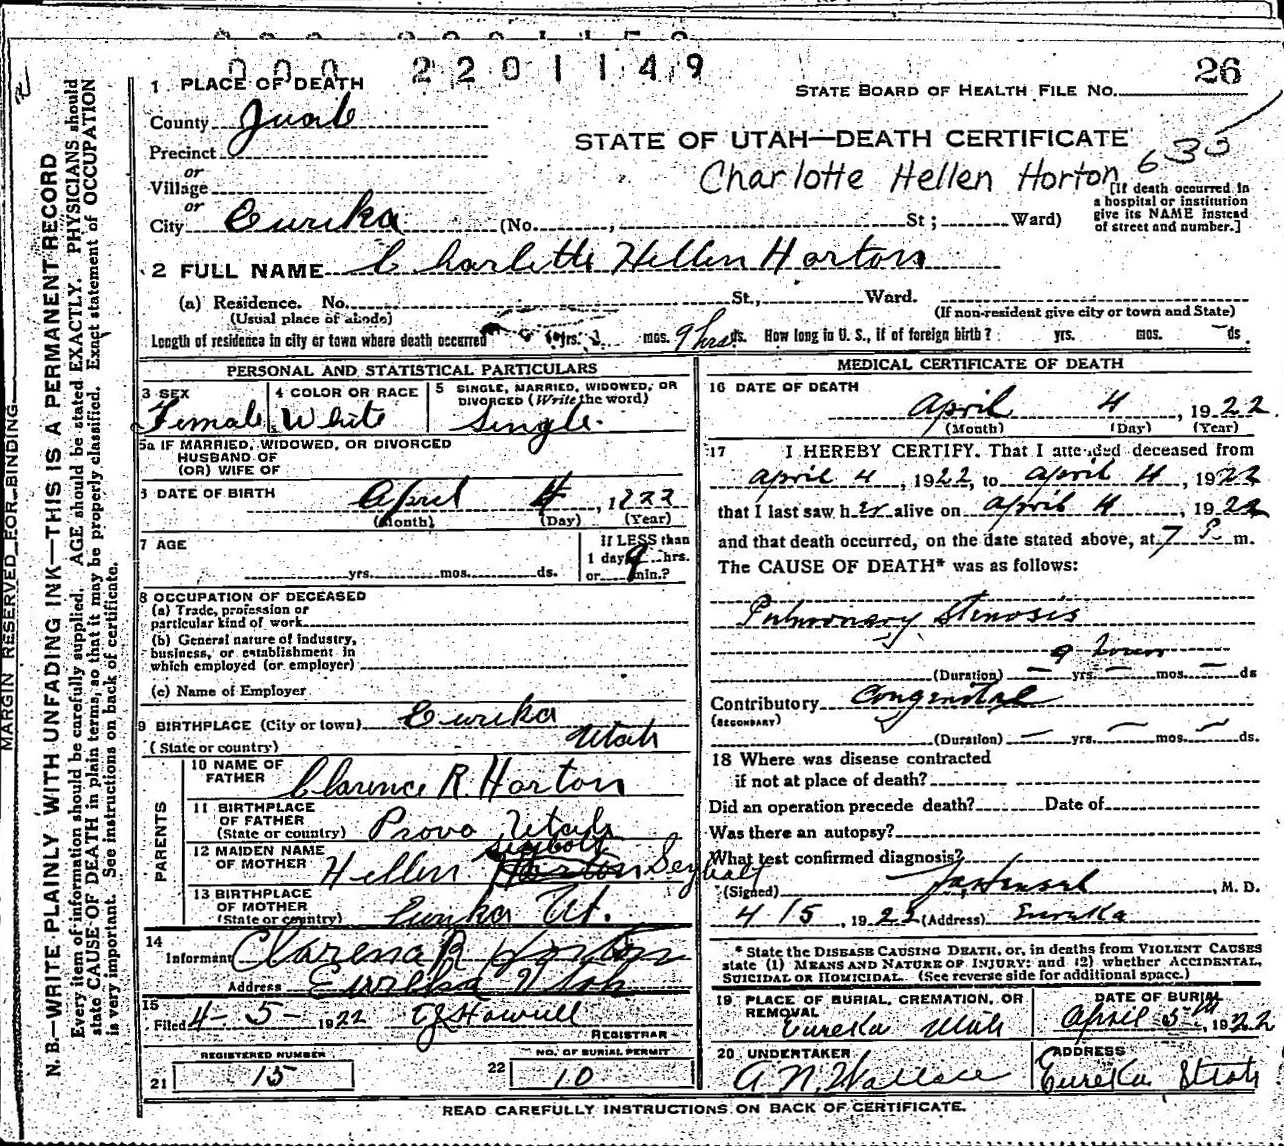 000 2201149
26
1 PLACE OF DEATH
STATE BOARD OF HEALTH FILE NO.
County Juab
STATE OF UTAH—DEATH CERTIFICATE
635
Precinct
Charlotte Hellen Horton
or
Village
or
City Eureka (No. , St; Ward)
[If death occurred in
a hospital or institution
give its NAME instead
of street and number.]
2 FULL NAME Charlette Hellen Horton
(a) Residence. No. St., Ward.
(Usual place of abode) (If non-resident give city or town and State)
Length of residence in city or town where death occurred yrs. mos. 9 hrs ds. How long in U. S., if of foreign birth? yrs. mos. ds.
MARGIN RESERVED FOR BINDING
N. B.—WRITE PLAINLY WITH UNFADING INK—THIS IS A PERMANENT RECORD
Every item of information should be carefully supplied. AGE should be stated EXACTLY. PHYSICIANS should
state CAUSE OF DEATH in plain terms, so that it may be properly classified. Exact statement of OCCUPATION
is very important. See instructions on back of certificate.
PERSONAL AND STATISTICAL PARTICULARS
3 SEX
Female
4 COLOR OR RACE
White
5 SINGLE, MARRIED, WIDOWED, OR
DIVORCED (Write the word)
Single.
5a IF MARRIED, WIDOWED, OR DIVORCED
HUSBAND OF
(OR) WIFE OF
6 DATE OF BIRTH April 4, 1922
(Month) (Day) (Year)
7 AGE
yrs. mos. ds.
If LESS than
1 day 9 hrs.
or min.?
8 OCCUPATION OF DECEASED
(a) Trade, profession or
particular kind of work
(b) General nature of industry,
business, or establishment in
which employed (or employer)
(c) Name of Employer
9 BIRTHPLACE (City or town) Eureka
(State or country) Utah
PARENTS
10 NAME OF
FATHER Clarence R. Horton
11 BIRTHPLACE
OF FATHER
(State or country) Provo Utah
12 MAIDEN NAME
OF MOTHER Hellen Horton Seybolt
13 BIRTHPLACE
OF MOTHER
(State or country) Eureka Ut.
14
Informant Clarence R Horton
Address Eureka Utah
15
Filed 4-5-1922 REGISTRAR
21 REGISTERED NUMBER
15
22 NO. OF BURIAL PERMIT
10
MEDICAL CERTIFICATE OF DEATH
16 DATE OF DEATH
April 4, 1922
(Month) (Day) (Year)
17 I HEREBY CERTIFY. That I attended deceased from
April 4, 1922, to April 4, 1922
that I last saw her alive on April 4, 1922
and that death occurred, on the date stated above, at 7 P. m.
The CAUSE OF DEATH* was as follows:
Pulmonary Stenosis
9 hours
(Duration) yrs. mos. ds
Contributory Congenital
(SECONDARY)
(Duration) yrs. mos. ds.
18 Where was disease contracted
if not at place of death?
Did an operation precede death? Date of
Was there an autopsy?
What test confirmed diagnosis?
(Signed) , M. D.
4/5, 1922 (Address) Eureka
* State the DISEASE CAUSING DEATH, or, in deaths from VIOLENT CAUSES
state (1) MEANS AND NATURE OF INJURY; and (2) whether ACCIDENTAL,
SUICIDAL OR HOMICIDAL. (See reverse side for additional space.)
19 PLACE OF BURIAL, CREMATION, OR
REMOVAL
Eureka Utah
DATE OF BURIAL
April 5th, 1922
20 UNDERTAKER
A N. Wallace
ADDRESS
Eureka
READ CAREFULLY INSTRUCTIONS ON BACK OF CERTIFICATE.